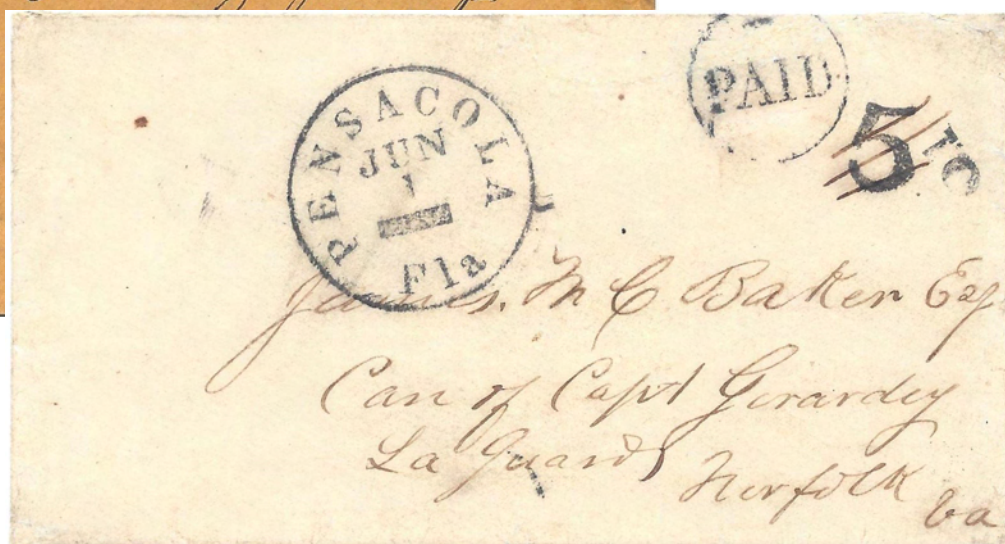 PENSACOLA
JUN
1
Fla
PAID
5
10
James. M C Baker Esq
Care of Capt Girardey
La Guards Norfolk
Va